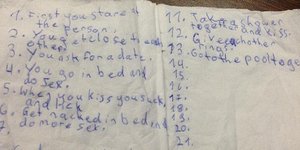 1. First you stare at
the person.
2. You get close to each
other.
3. You ask for a date.
4. You go in bed and
do sex.
5. When you kiss you suck
and lick
6. Get nacked in bed and
7. do more sex.
11. Take a shower
together and kiss.
12. Give each other
rings.
13. Go to the pool toge
14.
15.
16.
17.
18.
19.
20.
21.